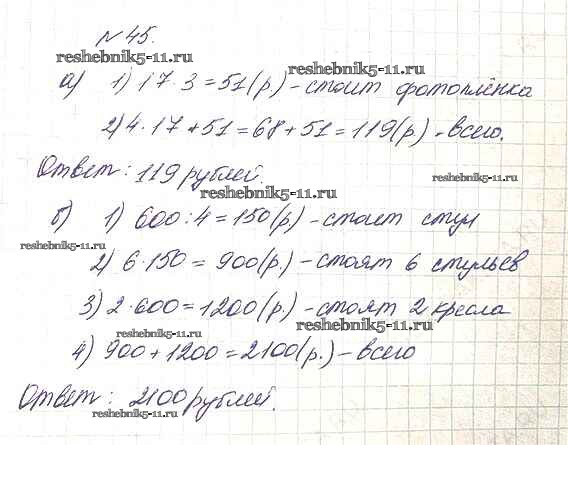 №45.
reshebnik5-11.ru
reshebnik5-11.ru
а) 1) 17·3=51(р)-стоит фотоплёнка
2) 4·17+51=68+51=119(р)-всего.
Ответ: 119 рублей.
reshebnik5-11.ru
reshebnik5-11.ru
б) 1) 600:4=150(р)-стоит стул
reshebnik5-11.ru
2) 6·150=900(р.)-стоят 6 стульев
3) 2·600=1200(р.)-стоят 2 кресла
reshebnik5-11.ru
reshebnik5-11.ru
4) 900+1200=2100(р.)-всего
Ответ: 2100 рублей.
reshebnik5-11.ru